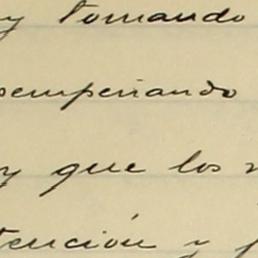 y tomando
sempeñando
y que los
tención y